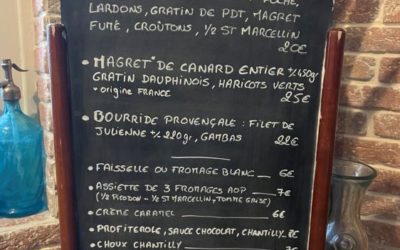 POCHÉ,
LARDONS, GRATIN DE PDT, MAGRET
FUMÉ, CROÛTONS, 1/2 ST MARCELLIN
20€
• MAGRET* DE CANARD ENTIER +/- 450gr
GRATIN DAUPHINOIS, HARICOTS VERTS
* origine FRANCE 25€
• BOURRIDE PROVENÇALE : FILET DE
JULIENNE +/- 220gr, GAMBAS 22€
• FAISSELLE OU FROMAGE BLANC 6€
• ASSIETTE DE 3 FROMAGES AOP 7€
(1/2 PICODON - 1/2 ST MARCELLIN, TOMME GRISE)
• CRÈME CARAMEL 6€
• PROFITEROLE, SAUCE CHOCOLAT, CHANTILLY 8€
• CHOUX CHANTILLY